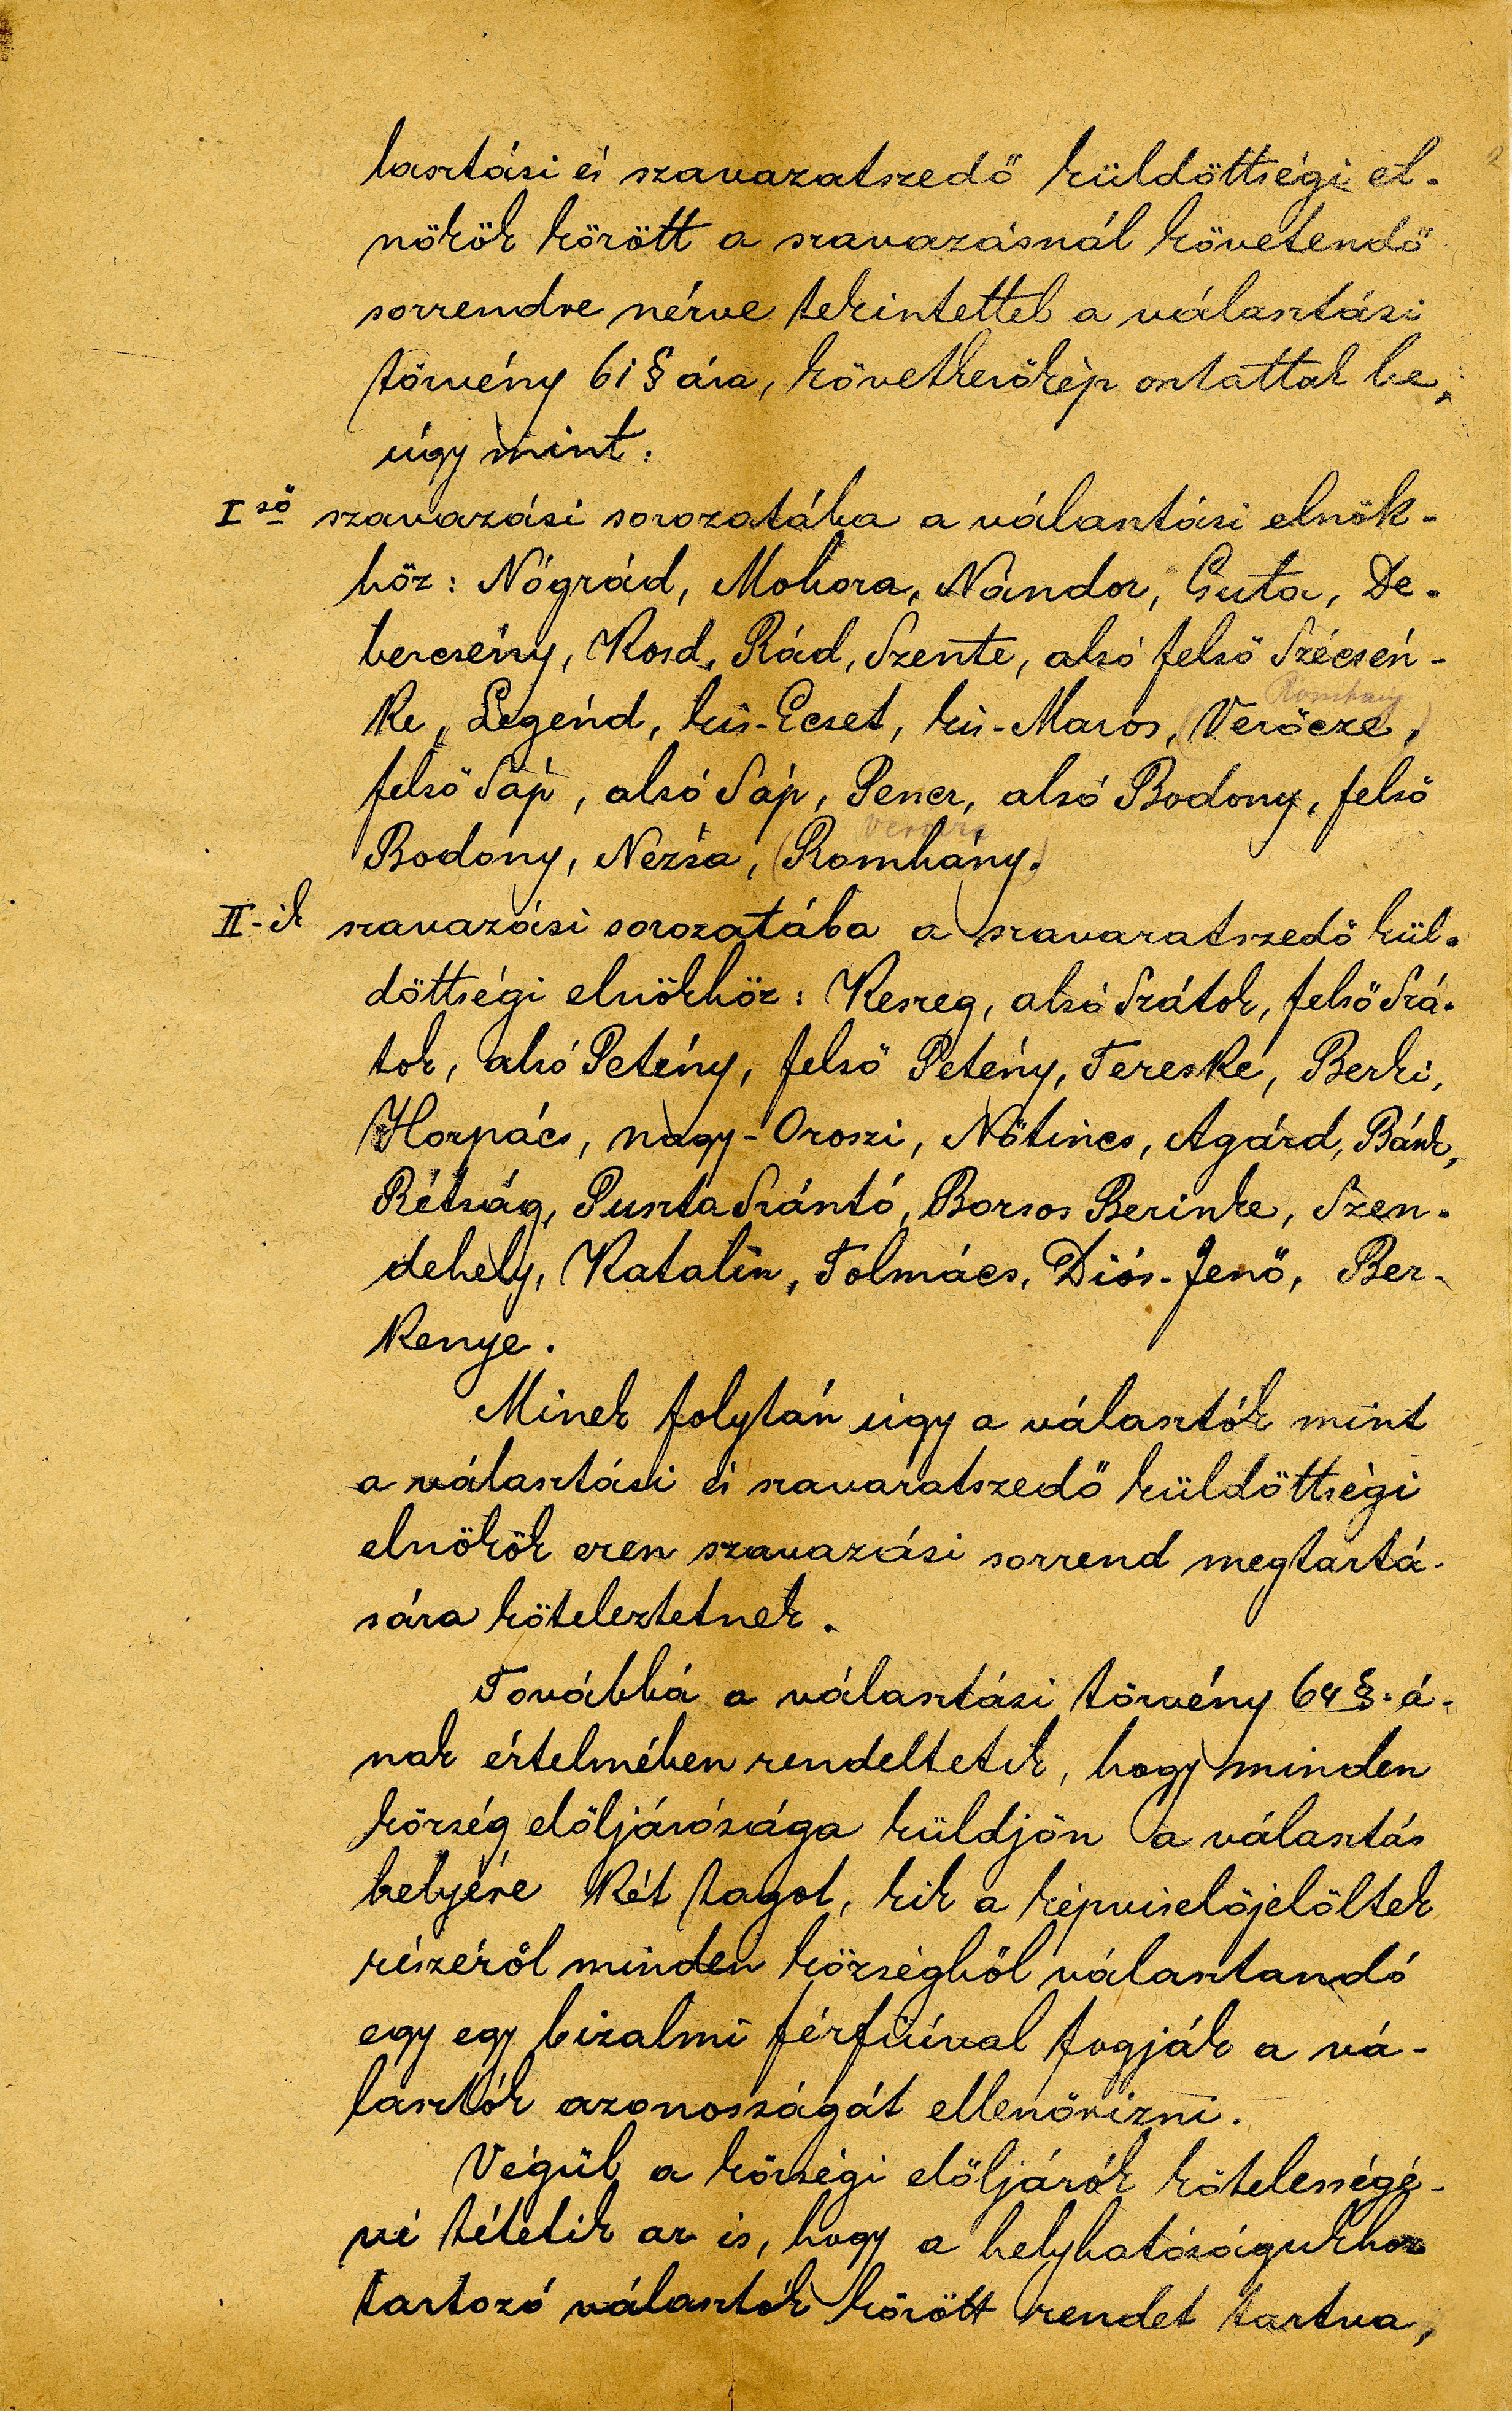 lasztási és szavazatszedő küldöttségi el-
nökök között a szavazásnál követendő
sorrendre nézve tekintettel a választási
törvény 61 § ára, következőkép osztattak be,
úgy mint:
I ső szavazási sorozatába a választási elnök-
höz: Nógrád, Mohora, Nándor, Guta, De-
bercsény, Kosd, Rád, Szente, alsó felső Szécsén-
Romhány
ke, Legénd, kis-Ecset, kis-Maros, (Verőcze,)
felső Sáp, alsó Sáp, Pencz, alsó Bodony, felső
Verőcze
Bodony, Nézsa, (Romhány.)
II-ik szavazási sorozatába a szavazatszedő kül-
döttségi elnökhöz: Keszeg, alsó Szátok, felső Szá-
tok, alsó Petény, felső Petény, Tereske, Berki,
Horpács, nagy-Oroszi, Nőtincs, Agárd, Bánk,
Rétság, Puszta Szántó, Borsos Berinke, Szen-
dehely, Katalin, Tolmács, Diós-Jenő, Ber-
kenye.
Minek folytán úgy a választók mint
a választási és szavazatszedő küldöttségi
elnökök ezen szavazási sorrend megtartá-
sára köteleztetnek.
Továbbá a választási törvény 64 §-á-
nak értelmében rendeltetik, hogy minden
község elöljárósága küldjön a választás
helyére két tagot, kik a képviselőjelöltek
részéről minden községből választandó
egy egy bizalmi férfiúval fogják a vá-
lasztók azonosságát ellenőrizni.
Végül a községi elöljárók kötelességé-
vé tétetik az is, hogy a helyhatóságukhoz
tartozó választók között rendet tartva,